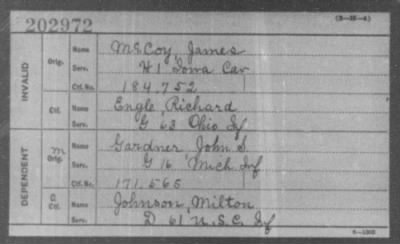 202972
(3—25—4)
INVALID
Orig.
Name McCoy, James
Serv. H 1 Iowa Cav
Ctf. No. 184,752
Ctf.
Name Engle, Richard
Serv. G 63 Ohio Inf
DEPENDENT
M
Orig.
Name Gardner John S.
Serv. G 16 Mich Inf
Ctf. No. 171,565
Ctf.
Name Johnson, Milton
Serv. D 61 U.S.C. Inf